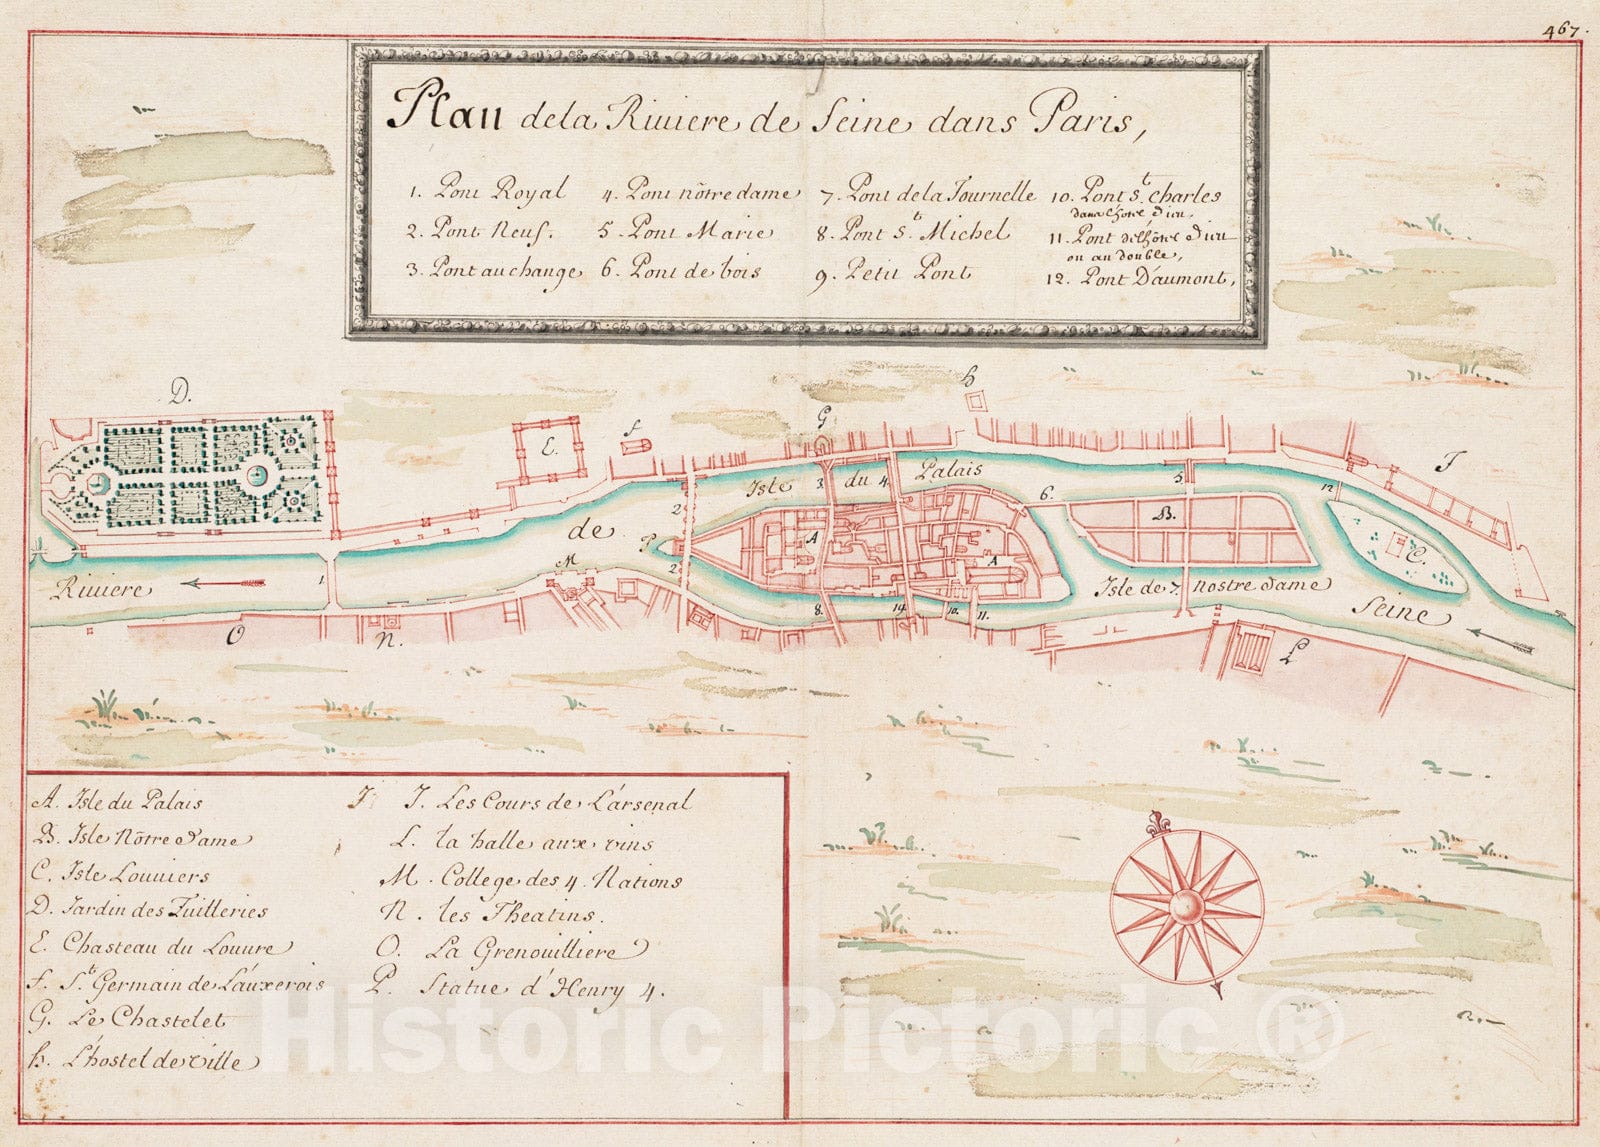 467.
Plan dela Riuiere de Seine dans Paris,
1. Pont Royal
2. Pont Neuf.
3. Pont au change
4. Pont nôtre dame
5. Pont Marie
6. Pont de bois
7. Pont de la Tournelle
8. Pont S.t Michel
9. Petit Pont
10. Pont S.t Charles
dans l'hotel Dieu,
11. Pont de l'hôtel Dieu
ou au double,
12. Pont D'aumont,
D.
E.
F
G
h
J
Isle du Palais
3
4
5
6.
12
2
B.
de
P
A
A
C.
M
2
Riuiere
1
Isle de Nostre Dame
7
Seine
8
10.
11.
O
N.
L
A. Isle du Palais
B. Isle Nôtre Dame
C. Isle Louuiers
D. Jardin des Tuilleries
E. Chasteau du Louure
F. S.t Germain de L'auxerois
G. Le Chastelet
h. L'hostel de Ville
J J. Les Cours de L'arsenal
L. la halle aux vins
M. College des 4 Nations
N. les Theatins.
O. La Grenouilliere
P. Statue d'Henry 4.
Historic Pictoric ®